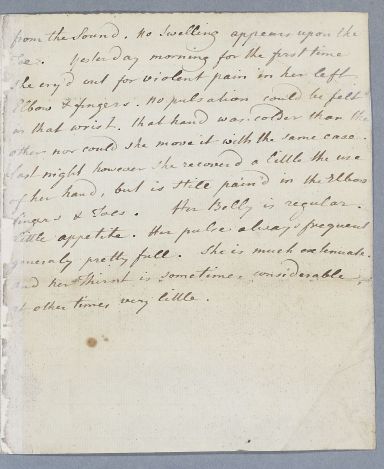 from the Sound. No Swelling appears upon the
Toe. Yesterday morning for the first time
She cry'd out for violent pain in her left
Elbow & fingers. No pulsation could be felt
in that wrist. that hand was colder than the
other nor could she move it with the same ease.
Last night however she recover'd a little the use
of her hand, but is still pain'd in the Elbow
fingers & Toes. Her Belly is regular.
little appetite. Her pulse always frequent
generaly pretty full. She is much extenuate.
and her Thirst is sometimes considerable,
at other times very little.